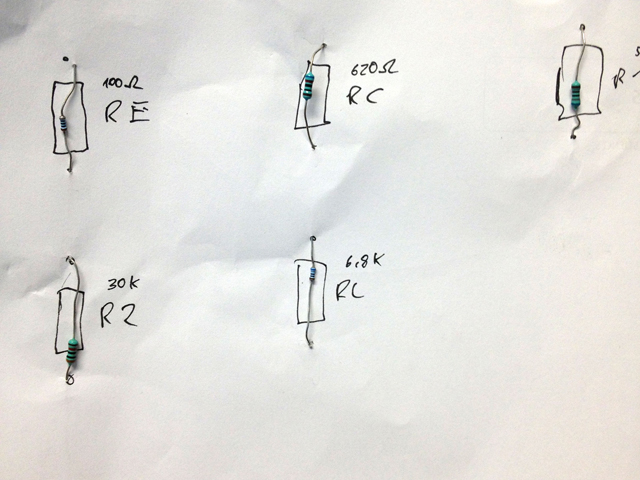 100Ω
RE
620Ω
RC
30K
R2
6,8K
RL